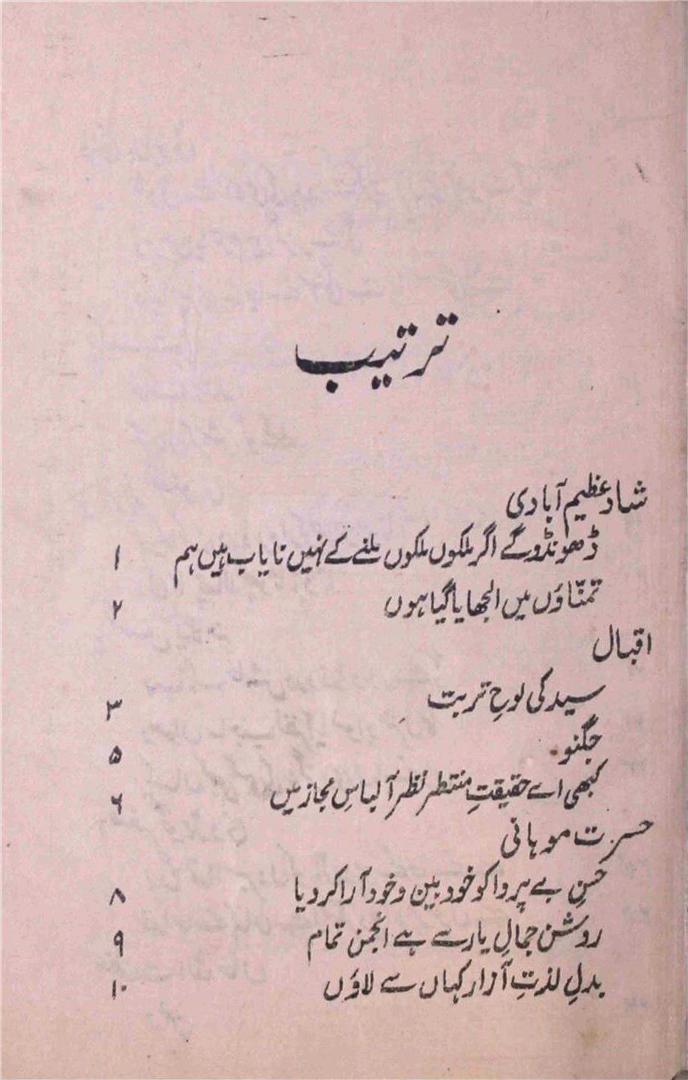 ترتیب
شاد عظیم آبادی
ڈھونڈو گے اگر ملکوں ملکوں ملنے کے نہیں نایاب ہیں ہم ۱
تمنّاؤں میں الجھایا گیا ہوں ۲
اقبال
سید کی لوحِ تربت ۳
جگنو ۵
کبھی اے حقیقتِ منتظر نظر آ لباسِ مجاز میں ۶
حسرت موہانی
حسنِ بے پروا کو خود بین و خود آرا کر دیا ۸
روشن جمالِ یار سے ہے انجمن تمام ۹
بدلِ لذتِ آزار کہاں سے لاؤں ۱۰